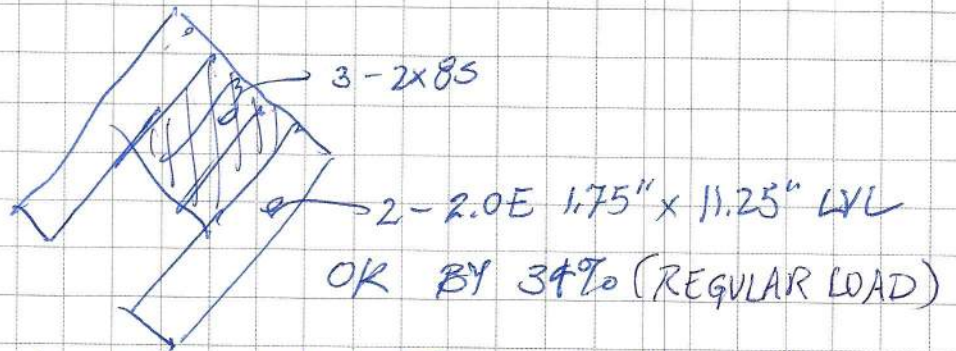 3-2x8S
2-2.0E 1.75" x 11.25" LVL
OK BY 34% (REGULAR LOAD)